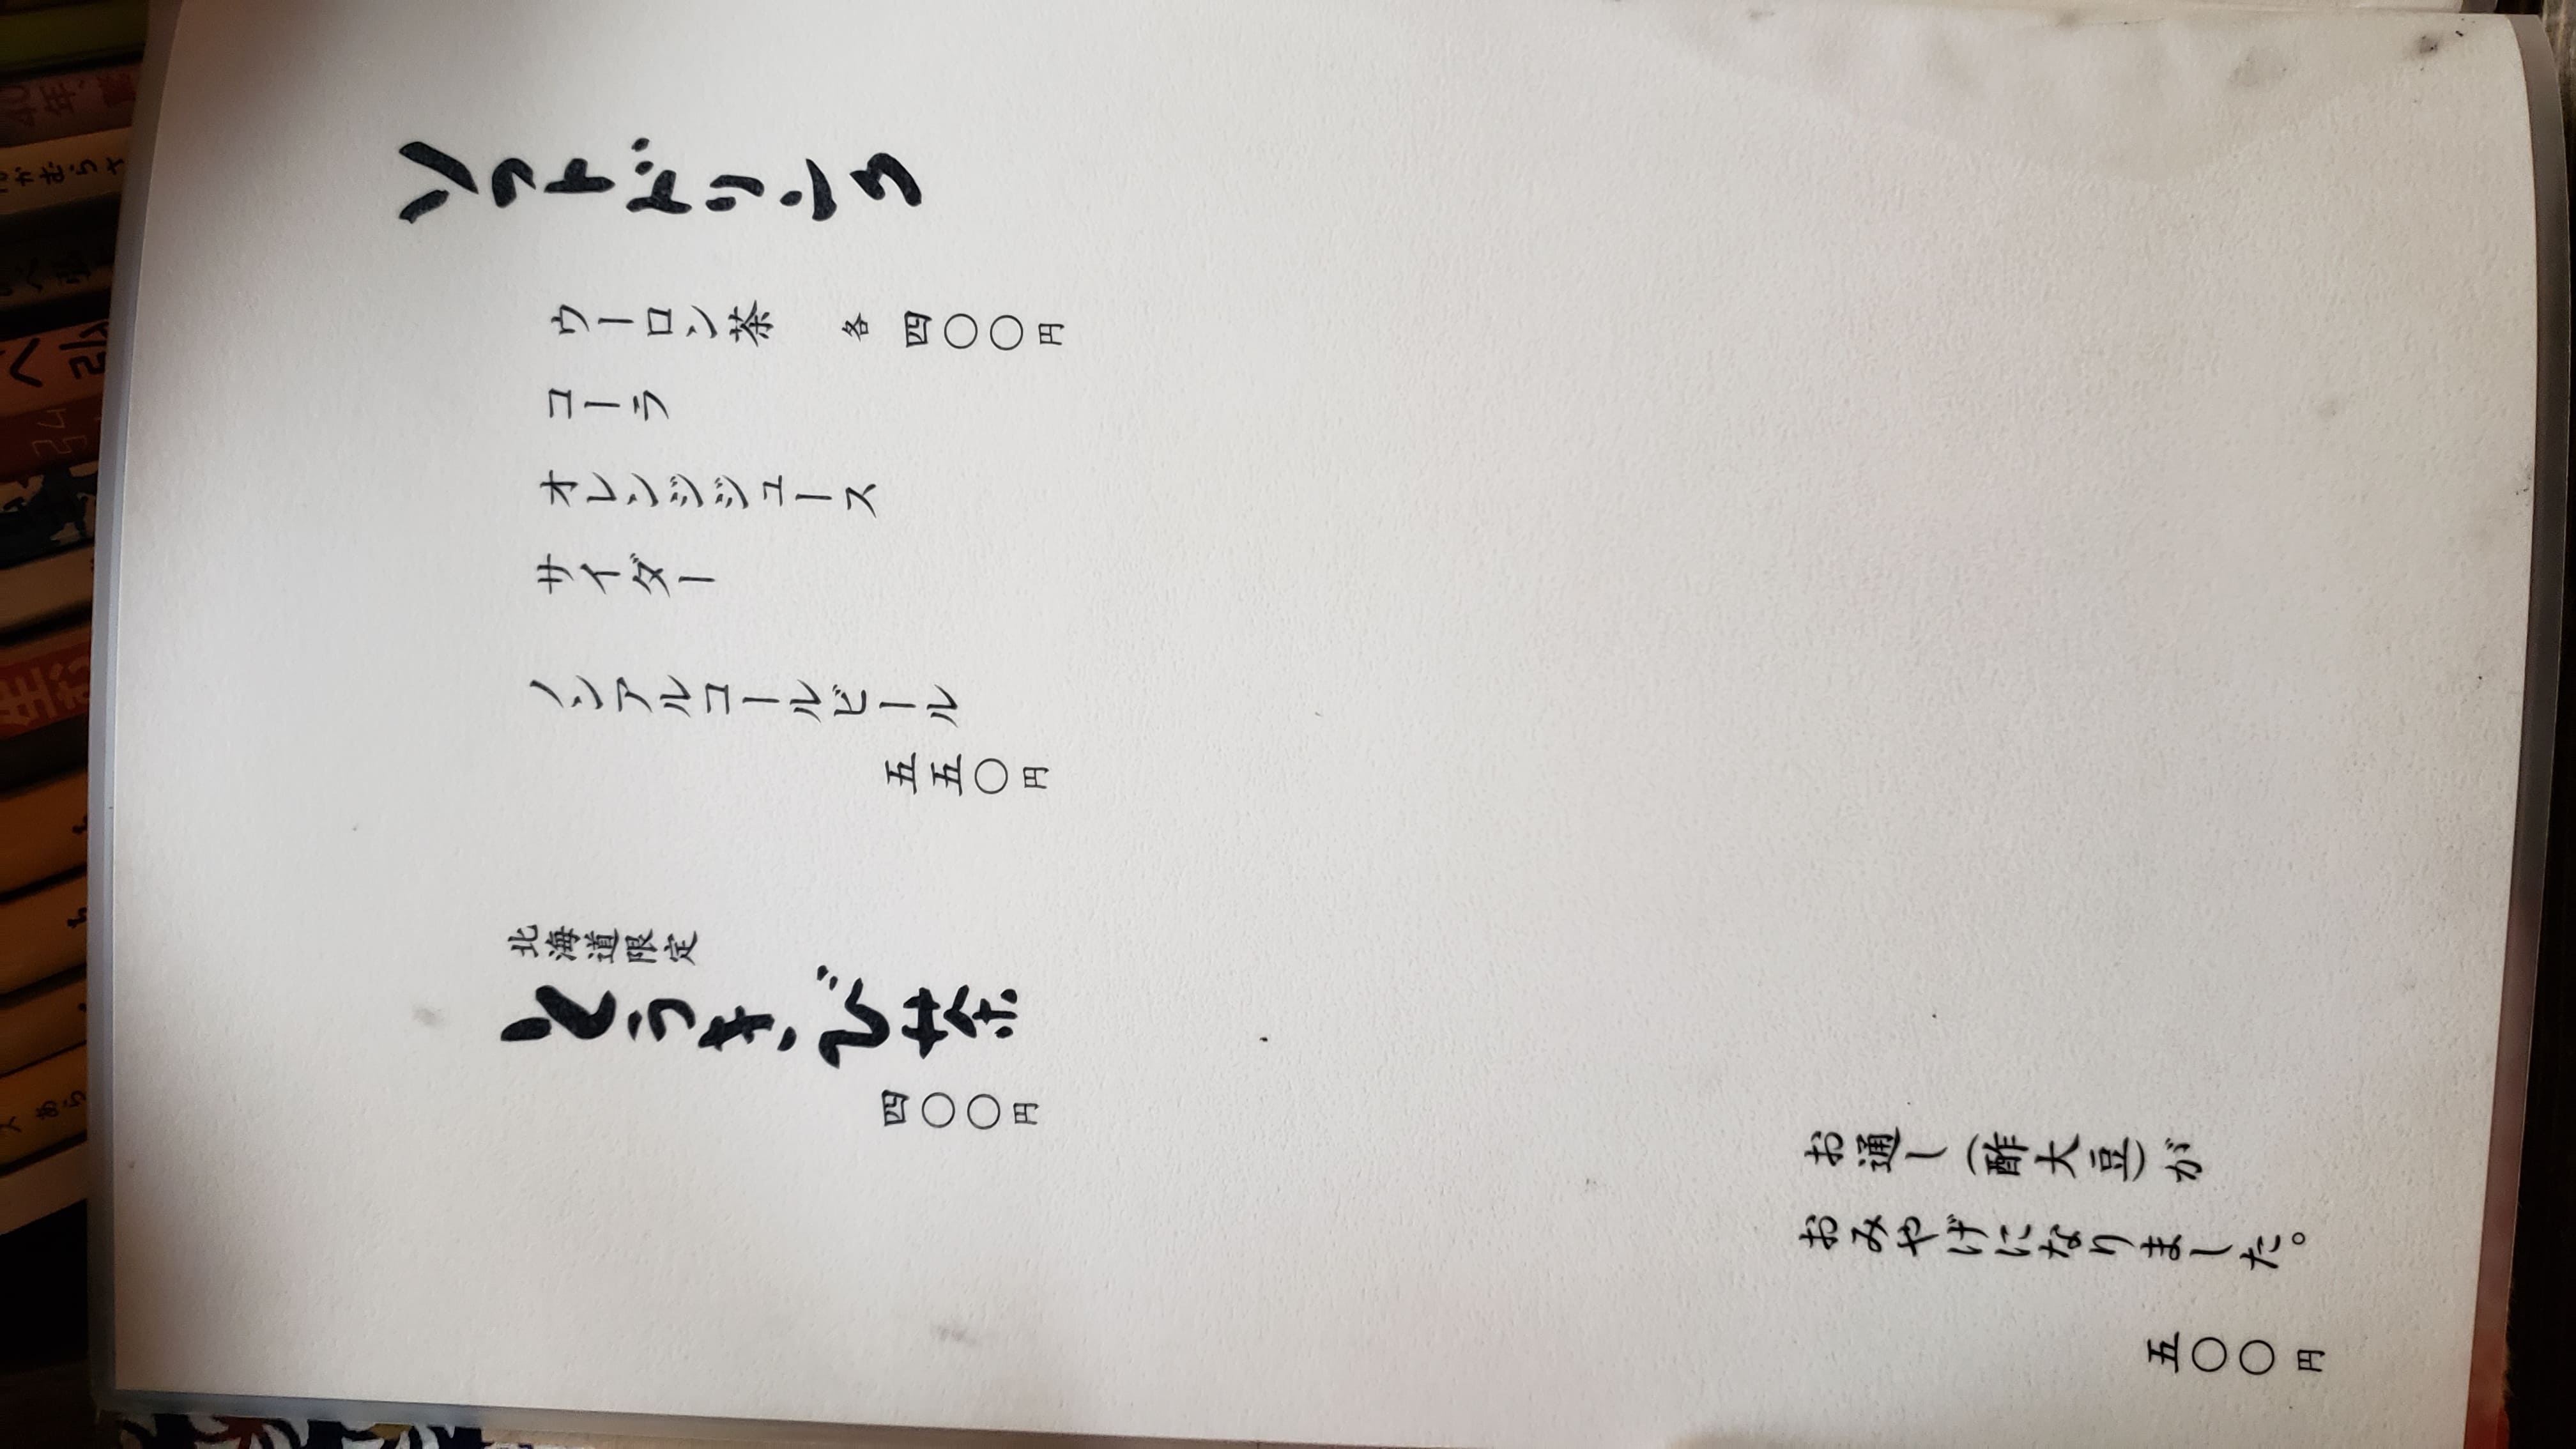 ソフトドリンク
ウーロン茶 各 四〇〇円
コーラ
オレンジジュース
サイダー
ノンアルコールビール
五五〇円
北海道限定
とうきび茶
四〇〇円
お通し(酢大豆)が
おみやげになりました。
五〇〇円